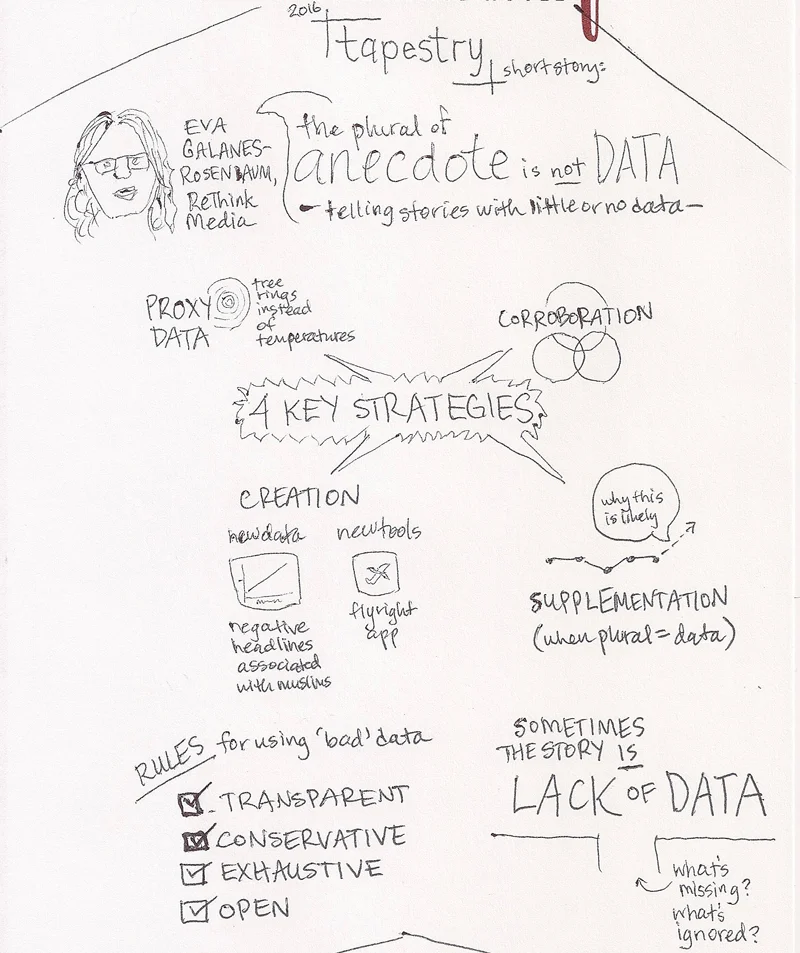 2016
tapestry
short story:
EVA
GALANES-
ROSENBAUM,
ReThink
Media
the plural of
anecdote is not DATA
- telling stories with little or no data -
PROXY
DATA
tree
rings
instead
of
temperatures
CORROBORATION
4 KEY STRATEGIES
CREATION
new data
negative
headlines
associated
with muslims
new tools
flyright
app
why this
is likely
SUPPLEMENTATION
(when plural = data)
RULES for using 'bad' data
TRANSPARENT
CONSERVATIVE
EXHAUSTIVE
OPEN
SOMETIMES
THE STORY IS
LACK OF DATA
what's
missing?
what's
ignored?